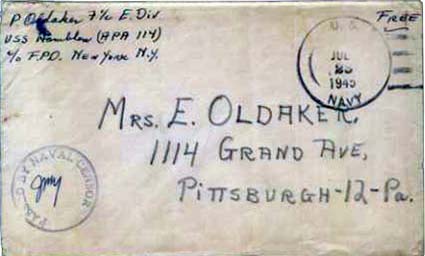 P Oldaker F1/c E. Div
USS Hamblen (APA 114)
c/o F.P.O. New York N.Y.
Free
U.S.
JUL
1945
NAVY
Mrs. E. Oldaker,
1114 Grand Ave,
Pittsburgh-12-Pa.
PASSED BY NAVAL CENSOR